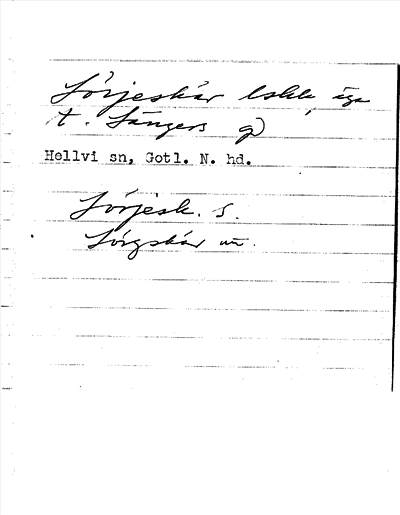 Sörjeskär lskl, äga
t. Sängers g)
Hellvi sn, Gotl. N. hd.
Sörjesk. S.
Sörgskär un.